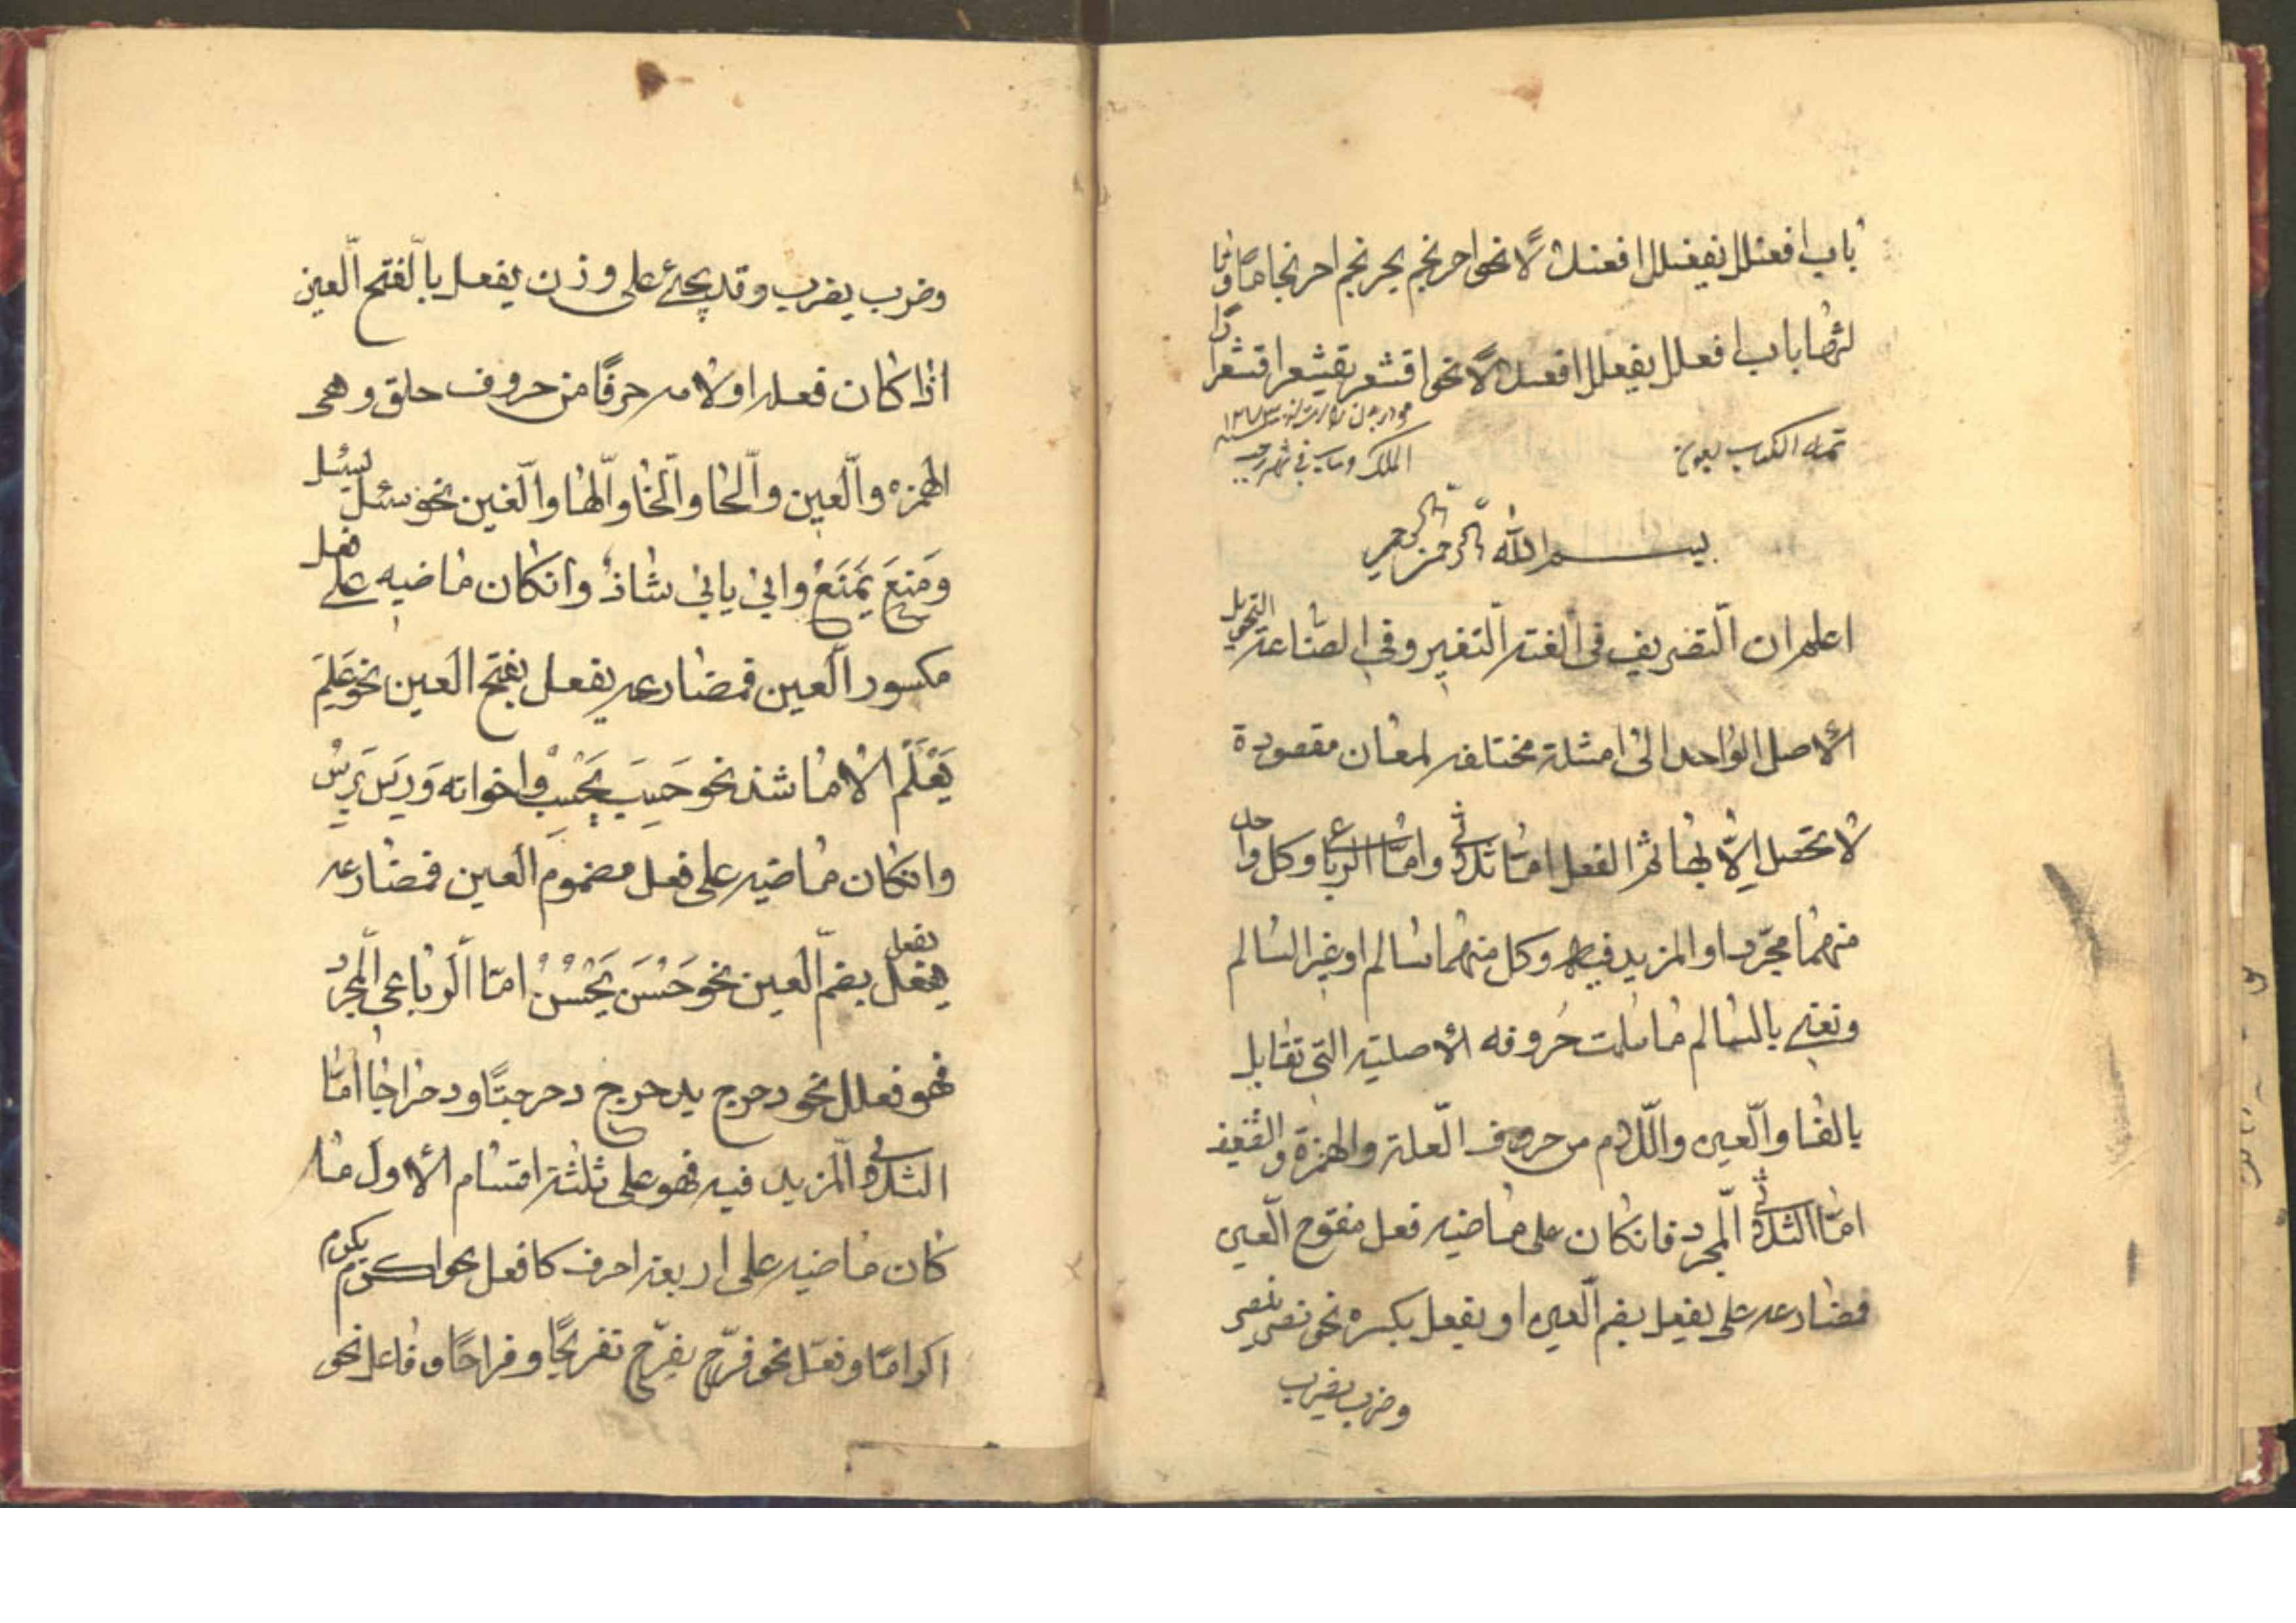 باب افعنلل يفعنلل افعنلالًا نحو احرنجم يحرنجم احرنجامًا وثا
لثها باب افعلل يفعلل افعلالًا نحو اقشعر يقشعر اقشعرارًا
تمت الكتاب بعون
الملك وهاب في شهر رجب
بسم الله الرحمن الرحيم
اعلم ان التصريف في الغتة التغير وفي الصناعة التحويل
الأصل الواحد الى امثلة مختلفة لمعان مقصودة
لا تحصل الّا بها ثم الفعل امّا ثلاثي وامّا الرباعي وكل واحد
منهما مجرّد او المزيد فيه وكل منهما سالم او غير السالم
ونعني بالسالم ما سلمت حروفه الأصلية التي تقابل
بالفا والعين واللام من حروف العلة والهمزة والتضعيف
امّا الثلاثي المجرد فانكان على ماضيه فعل مفتوح العين
فمضارعه على يفعل بضم العين او يفعل بكسره نحو نصر ينصر
وضرب يضرب
وضرب يضرب وقد يجيئ على وزن يفعل بالفتح العين
اذا كان فعله اولامه حرفًا من حروف حلق وهى
الهمزه والعين والحا والخا والها والغين نحو سئل يسئل
وَمَنِعَ يَمْنَعُ وابي يابي شاذ وانكان ماضيه على فعل
مكسور العين فمضارعه يفعل بفتح العين نحو عَلِمَ
يَعْلَمُ الا ما شذ نحو حَسِبَ يَحْسِبُ واخواته
وانكان ماضيه على فعل مضموم العين فمضارعه
يفعل يفعل بضم العين نحو حَسُنَ يَحْسُنُ امّا الرباعى المجرد
فهو فعلل نحو دحرج يدحرج دحرجتًا ودحراجًا امّا
الثلاثي المزيد فيه فهو على ثلثة اقسام الأول ما
كان ماضيه على اربعة احرف كافعل نحو اكرم يكرم
اكرامًا وفعّل نحو فرّح يفرّح تفريحًا وفراحًا وفاعل نحو